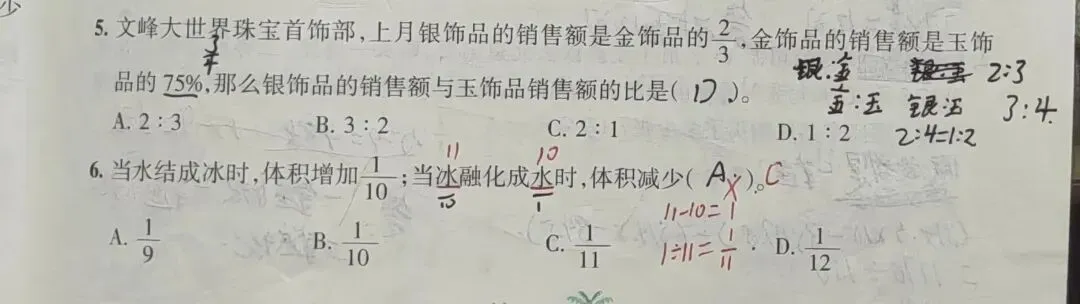 少
5. 文峰大世界珠宝首饰部,上月银饰品的销售额是金饰品的2/3,金饰品的销售额是玉饰
3/4
品的75%,那么银饰品的销售额与玉饰品销售额的比是( D )。
银:金 2:3
金:玉 银:玉 3:4
2:4=1:2
A. 2:3 B. 3:2 C. 2:1 D. 1:2
11 10
6. 当水结成冰时,体积增加1/10;当冰融化成水时,体积减少( A )。C
11-10=1
1÷11=1/11
A. 1/9 B. 1/10 C. 1/11 D. 1/12